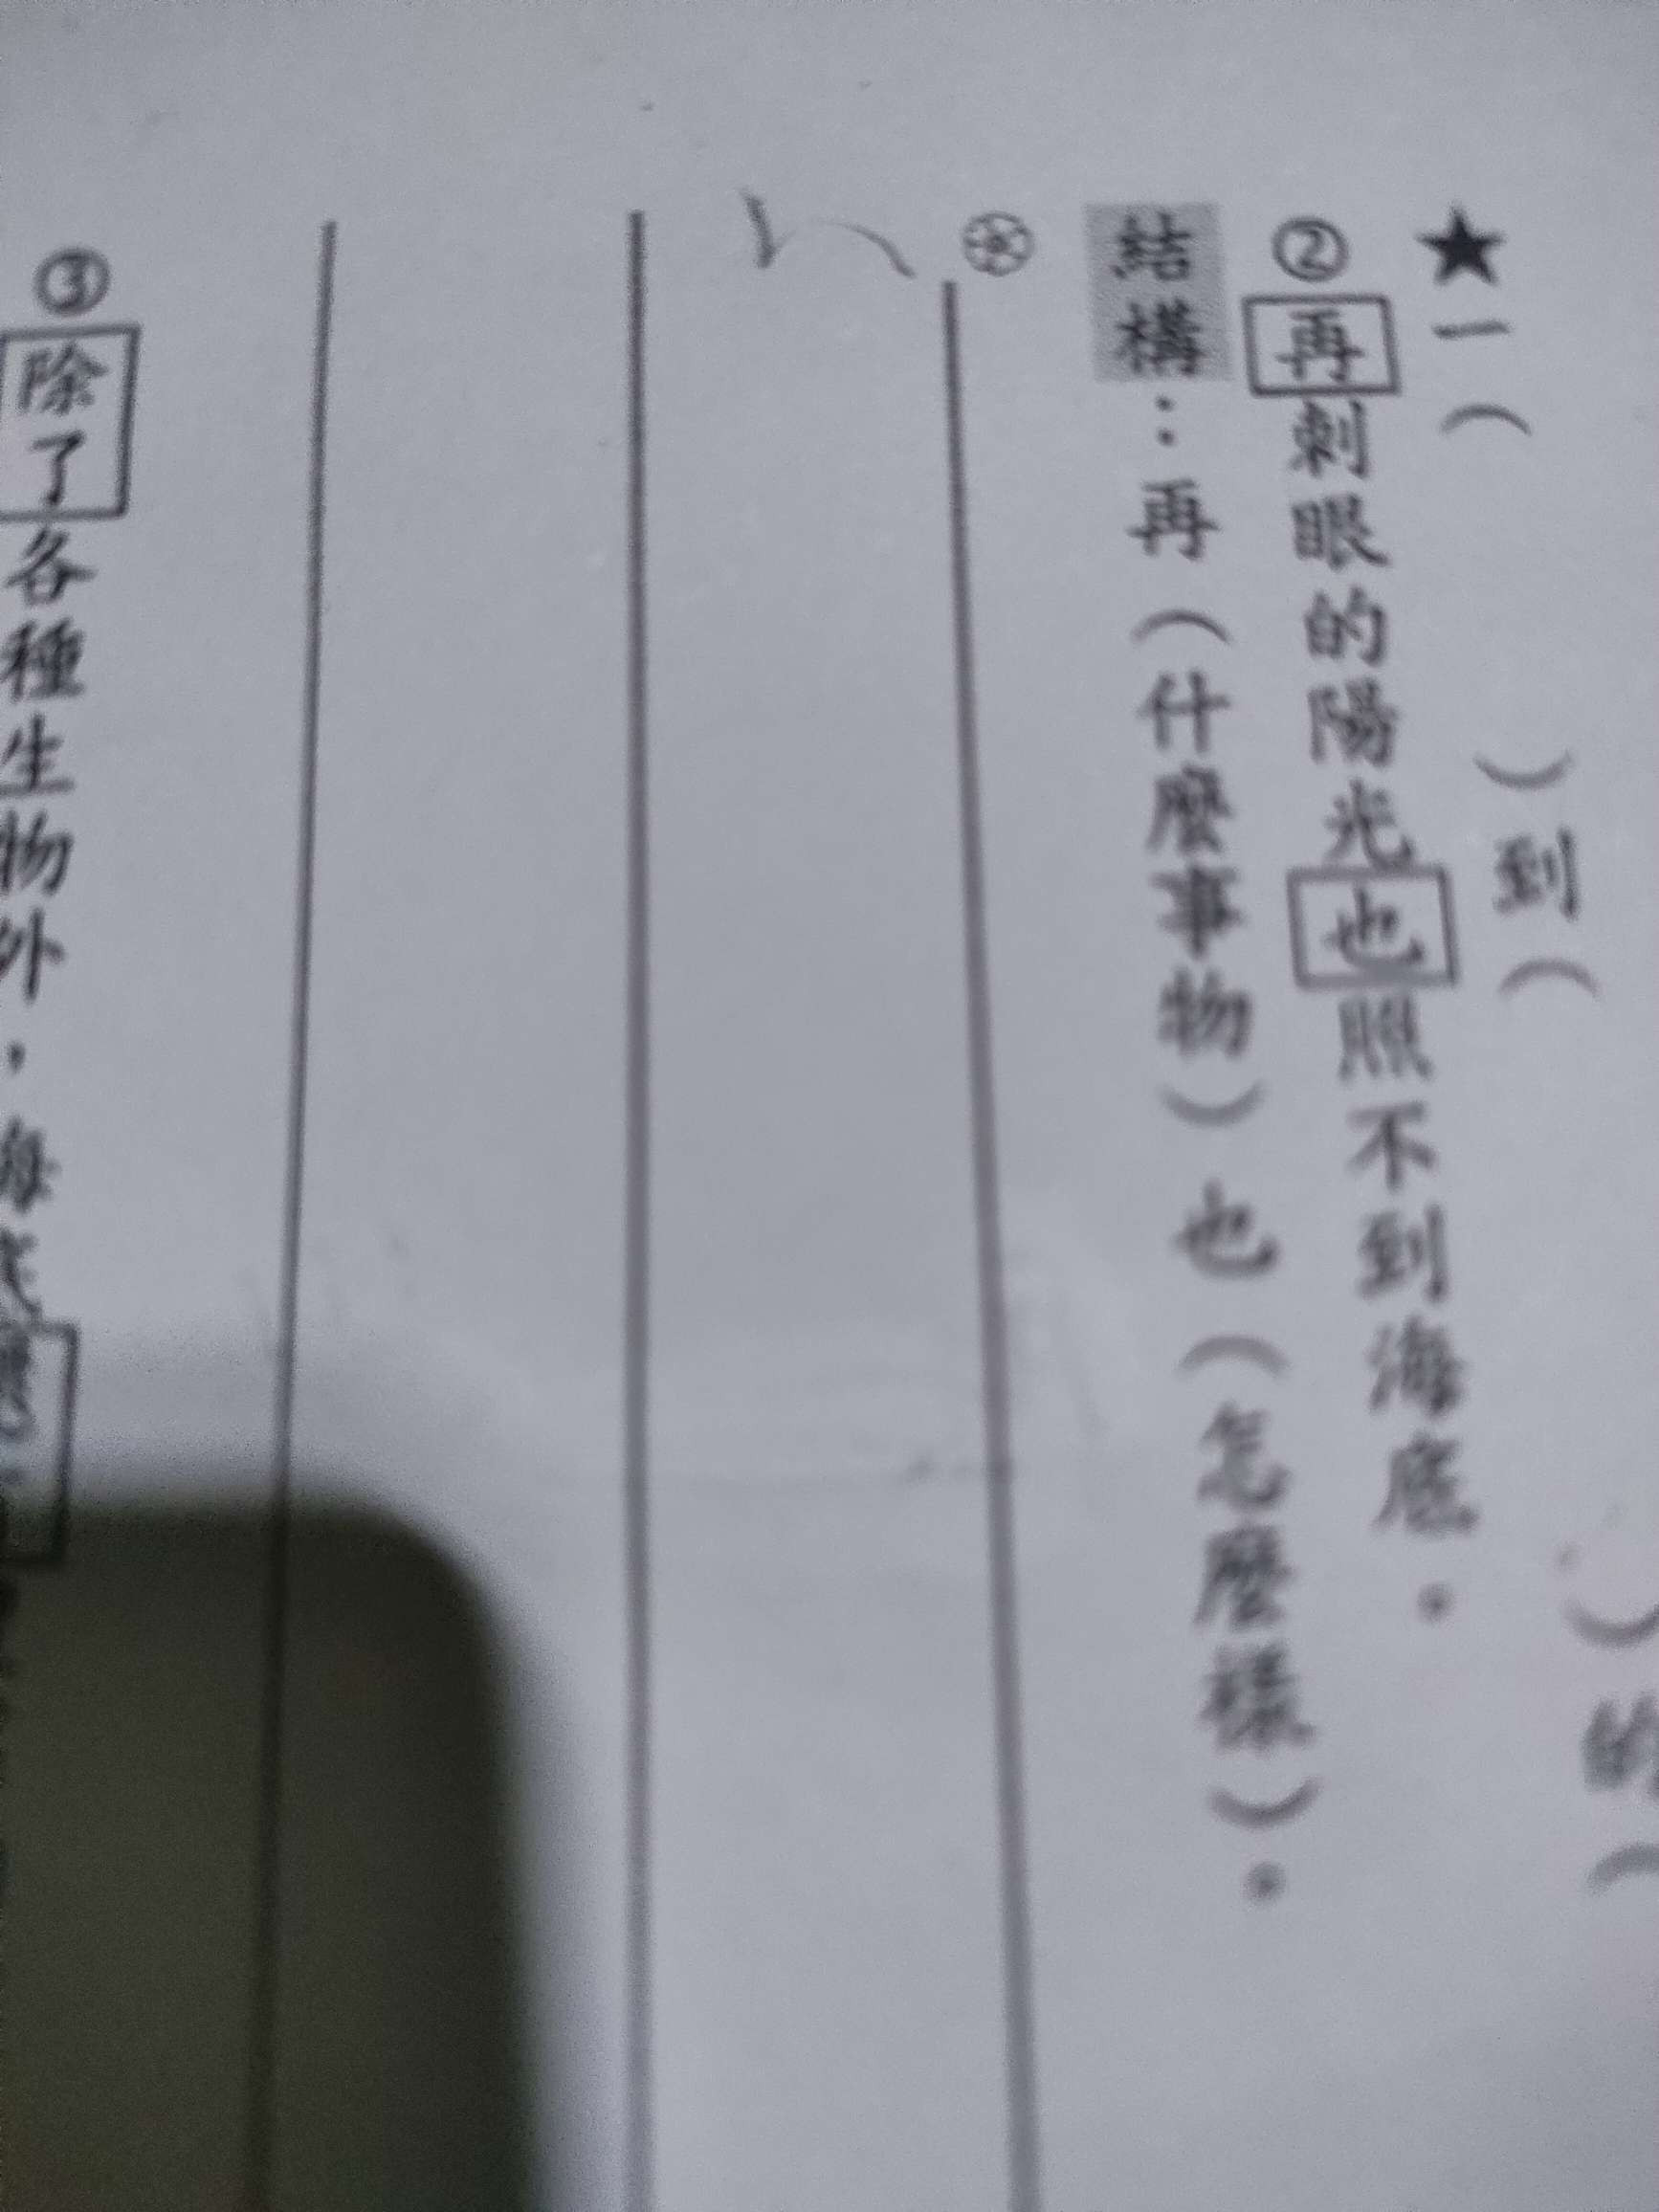 ）的（
★一（　　）到（　　）
②再刺眼的陽光也照不到海底。
結構：再（什麼事物）也（怎麼樣）。
③除了各種生物外，海